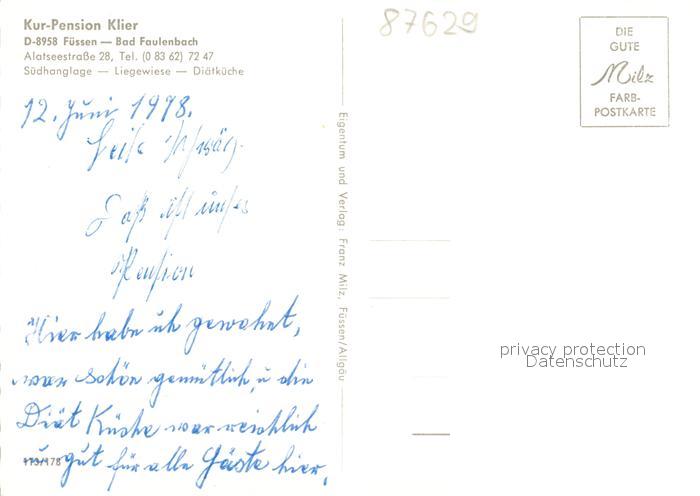 Kur-Pension Klier
D-8958 Füssen — Bad Faulenbach
Alatseestraße 28, Tel. (0 83 62) 72 47
Südhanglage — Liegewiese — Diätküche
87629
DIE
GUTE
Milz
FARB-
POSTKARTE
12. Juni 1998.
Pension
Hier habe ich gewohnt,
war schön gemütlich, u die
Diät Küche war reichlich
u gut für alle Gäste hier,
113/178
Eigentum und Verlag: Franz Milz, Füssen/Allgäu
privacy protection
Datenschutz